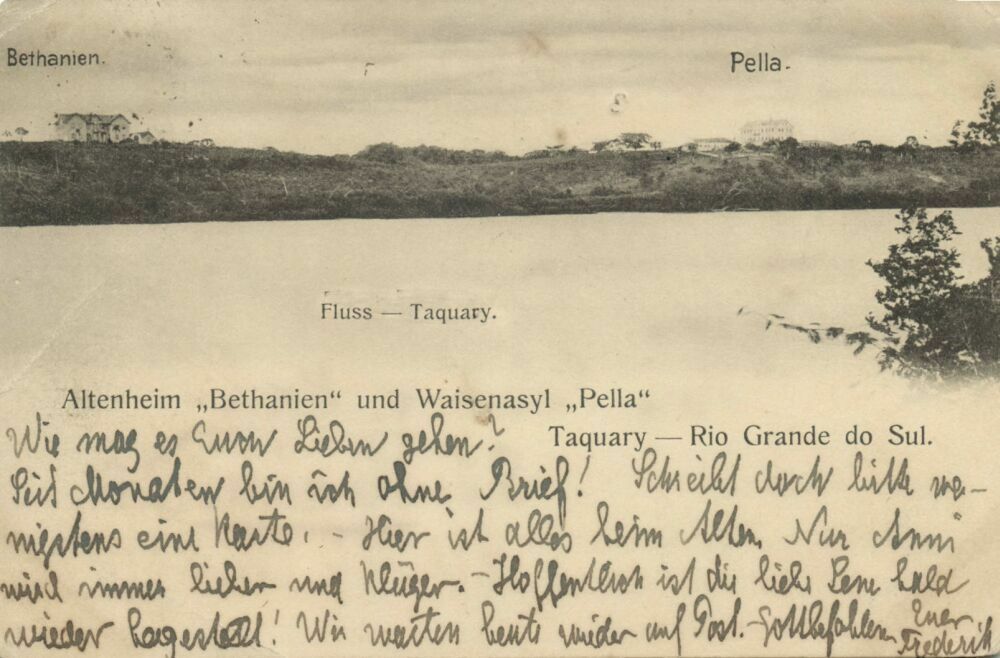 Bethanien.
Pella.
Fluss — Taquary.
Altenheim „Bethanien“ und Waisenasyl „Pella“
Taquary — Rio Grande do Sul.
Wie mag es Euch Lieben gehen?
Seit Monaten bin ich ohne Brief! Schreibt doch bitte we-
nigstens eine Karte. - Hier ist alles beim Alten. Nur Anni
wird immer lieber und klüger. - Hoffentlich ist die liebe Lene bald
wieder hergestellt! Wir warten heute wieder auf Post. - Gottbefohlen Euer
Frederik